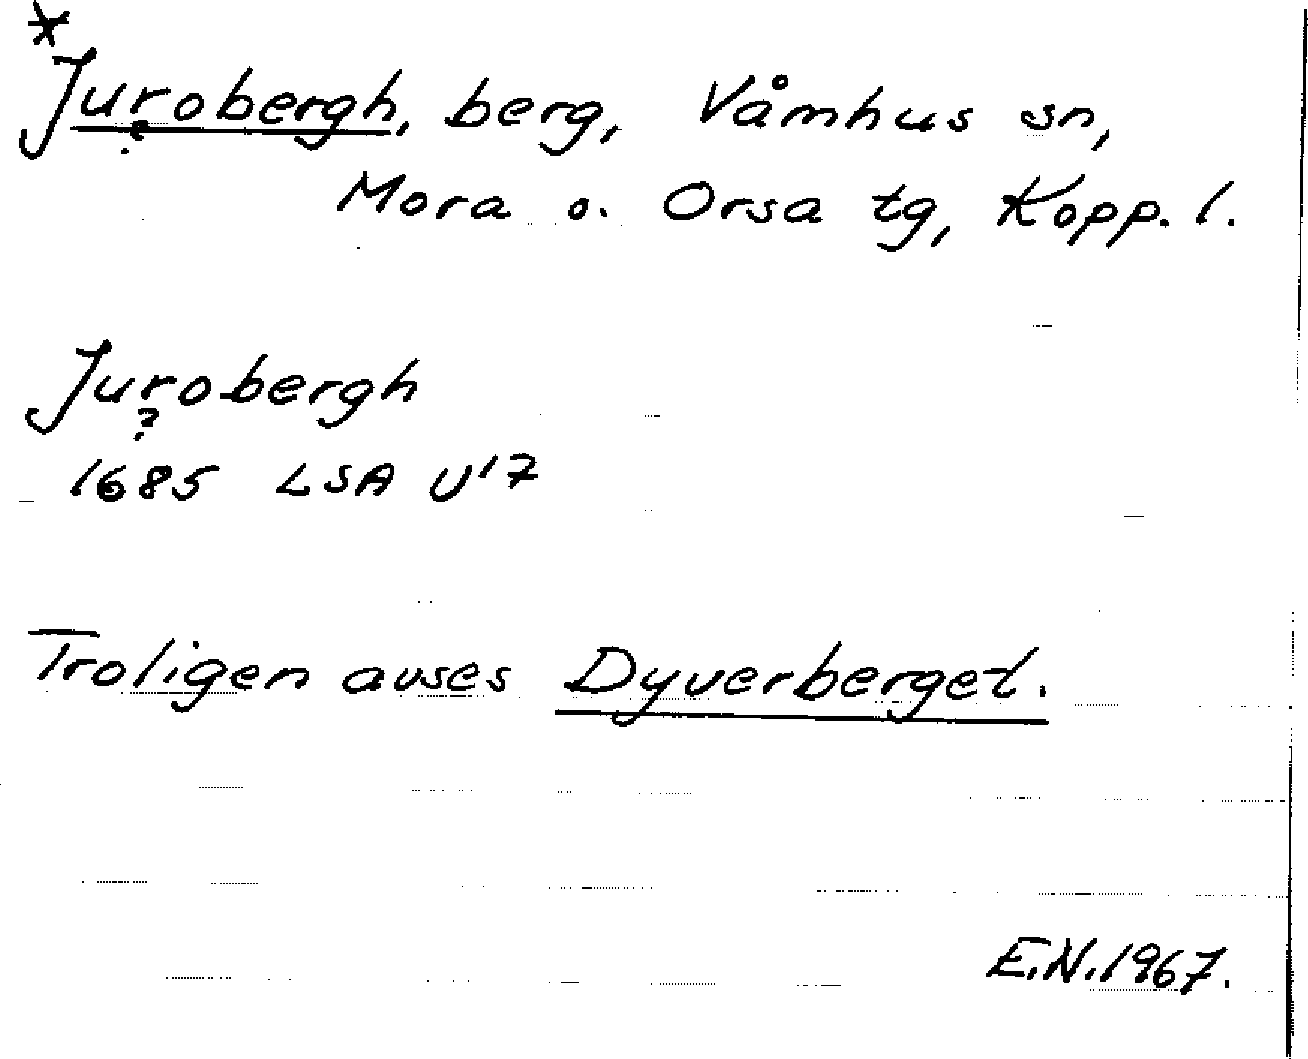 *
Jurobergh, berg, Våmhus sn,
?
Mora o. Orsa tg, Kopp. l.
Jurobergh
?
1685 LSA U17
Troligen avses Dyverberget.
E.N. 1967.